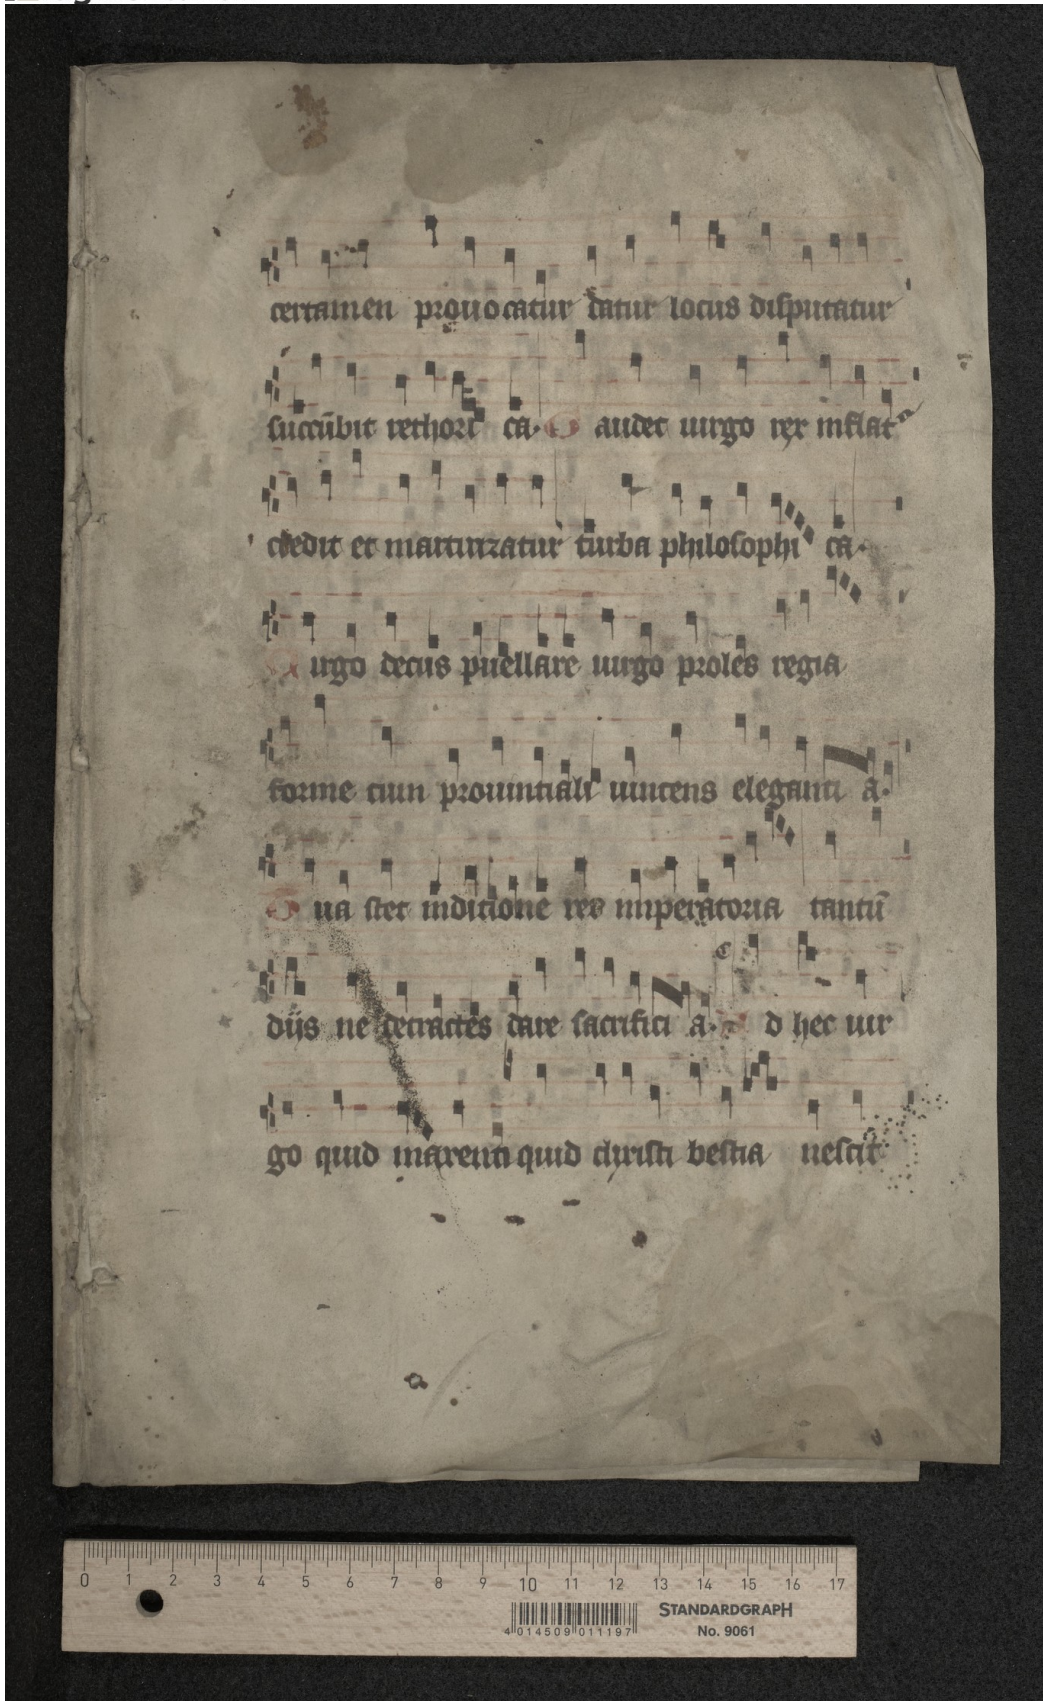 certamen prouocatur datur locus disputatur
succūbit rethori ca. G audet uirgo rex inflat
credit et martirizatur turba philosophi ca.
V irgo decus puellare uirgo proles regia
forme cum prouintiali uincens eleganti a.
S ua stet inditione res imperatoria tantū
diis ne detractes dare sacrifici a. A d hec uir
go quid maxenti quid christi bestia nescit
0 1 2 3 4 5 6 7 8 9 10 11 12 13 14 15 16 17
STANDARDGRAPH
4 014509 011197
No. 9061